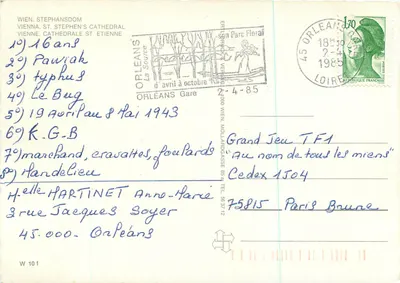 WIEN, STEPHANSDOM
VIENNA, ST. STEPHEN'S CATHEDRAL
VIENNE, CATHEDRALE ST ETIENNE
1º) 16 ans
2º) Pawiak
3º) typhus
4º) Le Bug
5º) 19 Avril au 8 Mai 1943
6º) K.G.B
7º) marchand, cravattes, foulards
8º) Mandelieu
Melle MARTINET Anne-Marie
3 rue Jacques Soyer
45.000 - Orléans
W 101
ORLÉANS
La Source
son Parc Floral
d'avril à octobre
ORLÉANS Gare
2-4-85
45 ORLEANS
18H
2-4
1985
LOIRET
1,70
Grand Jeu TF1
"Au nom de tous les miens"
Cedex 1504
75815 Paris Brune